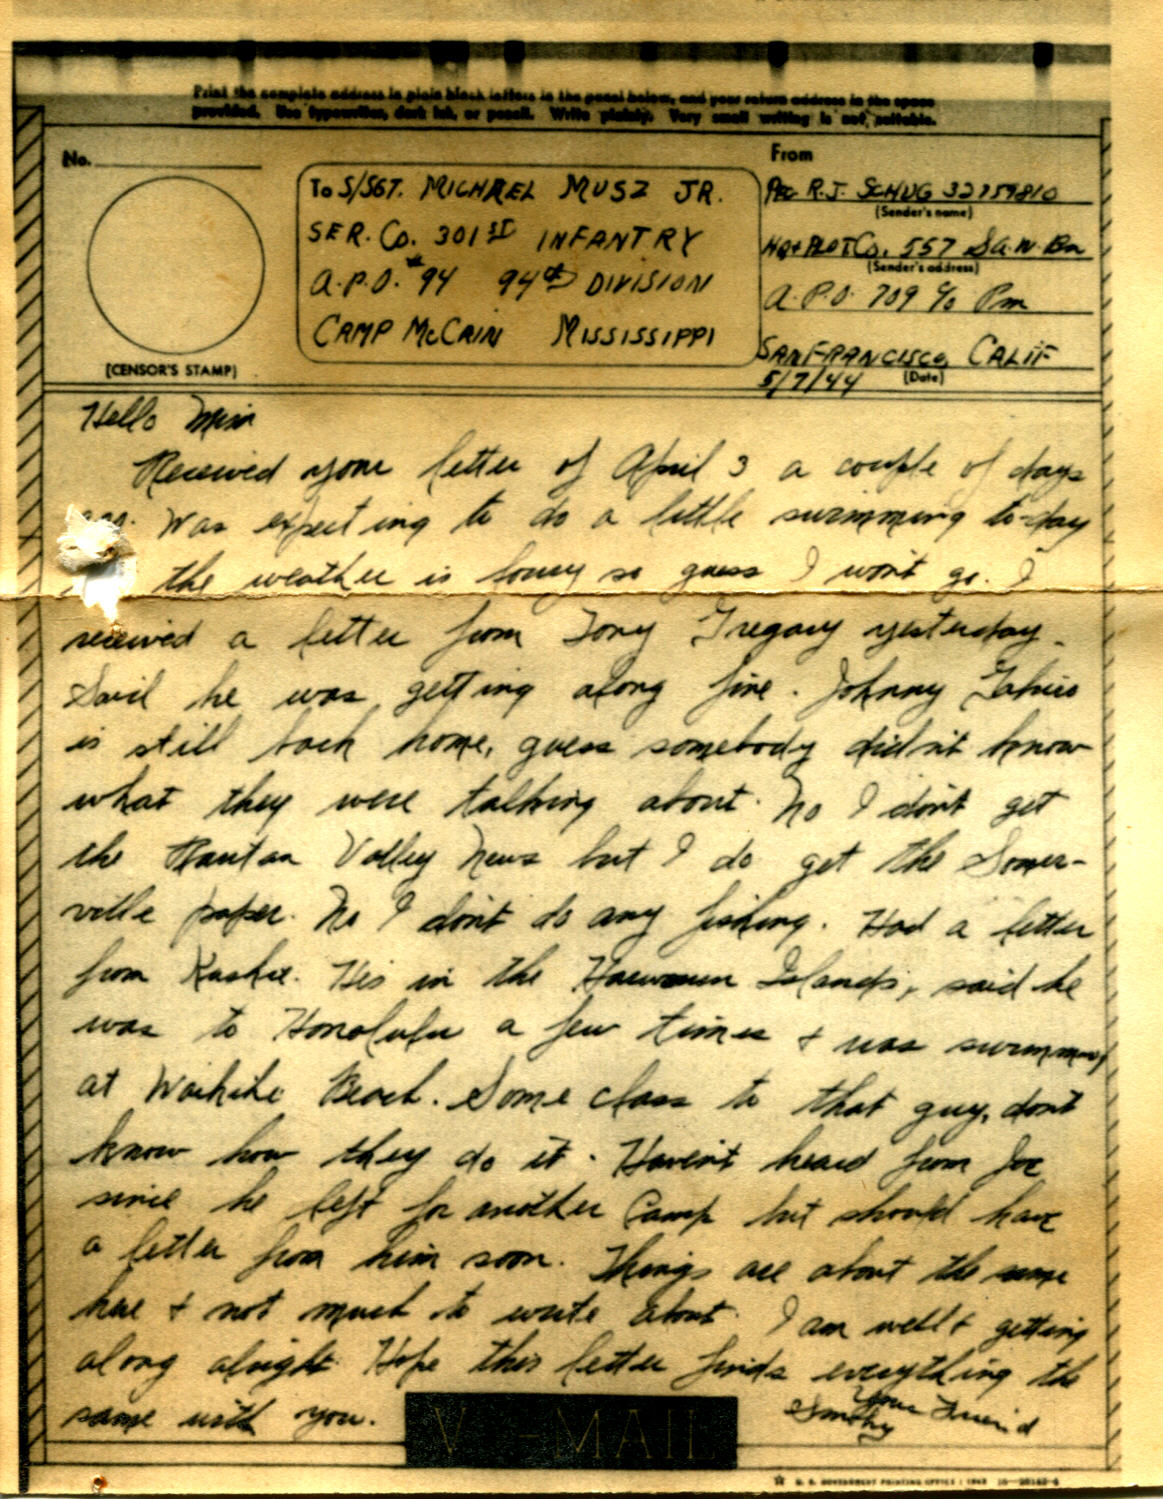 Print the complete address in plain block letters in the panel below, and your return address in the space
provided. Use typewriter, dark ink, or pencil. Write plainly. Very small writing is not suitable.
No.
(CENSOR'S STAMP)
To S/SGT. MICHAEL MUSZ JR.
SER. Co. 301ST INFANTRY
A.P.O. #94 94th DIVISION
CAMP McCAIN MISSISSIPPI
From
PFC R.J. SCHUG 32759810
(Sender's name)
HQ+PLOT Co. 557 S.A.W. Bn
(Sender's address)
A.P.O. 709 c/o Pm
SAN FRANCISCO, CALIF
5/7/44 (Date)
Hello
Received your letter of April 3 a couple of days
ago. Was expecting to do a little swimming to-day
the weather is lousy so guess I won't go. I
received a letter from Tony Gregory yesterday.
Said he was getting along fine. Johnny
is still back home, guess somebody didn't know
what they were talking about. No I don't get
the Raritan Valley News but I do get the Somer-
ville paper. No I don't do any fishing. Had a letter
from. His in the Hawaiian Islands, said he
was to Honolulu a few times + was swimming
at Waikiki Beach. Some class to that guy, dont
know how they do it. Haven't heard from Joe
since he left for another Camp but should have
a letter from him soon. Things are about the same
here + not much to write about. I am well + getting
along alright. Hope this letter finds everything the
same with you.
Your Friend
V-MAIL
U. S. GOVERNMENT PRINTING OFFICE : 1943